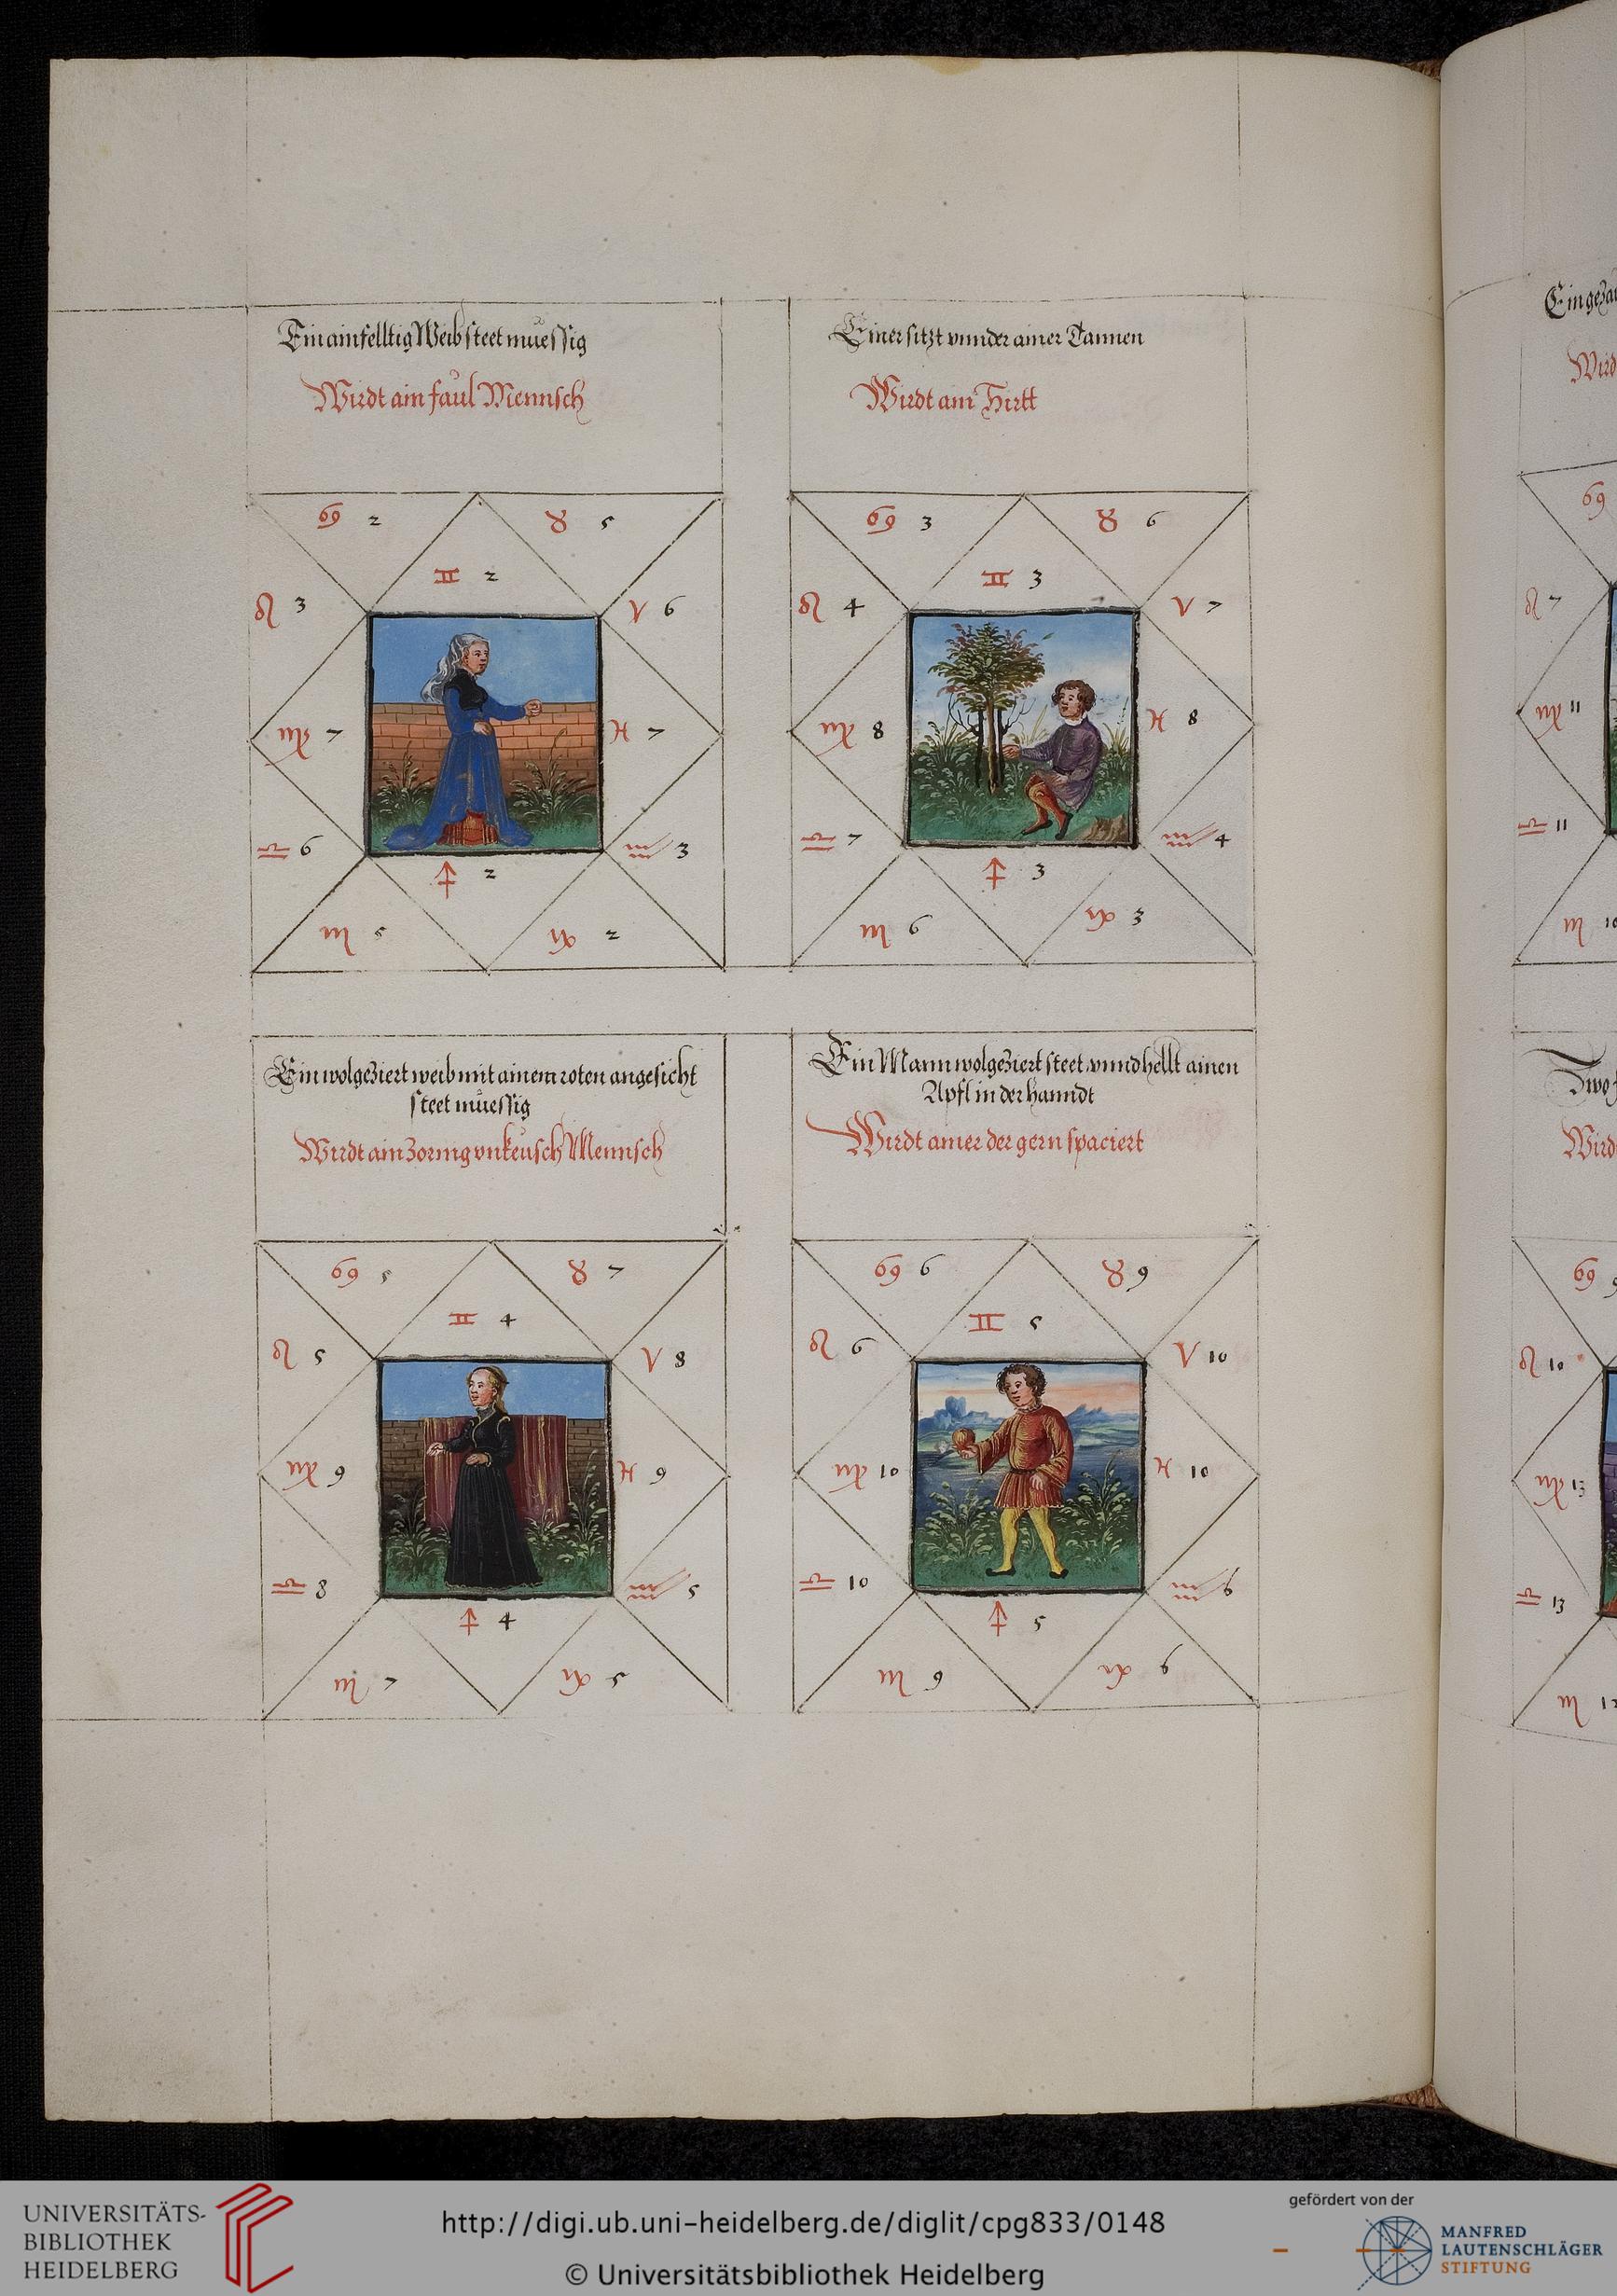 Ein ainfelltig Weib steet muessig
Wirdt ain faul Mennsch
♋ 2
♉ 5
♊ 2
♌ 3
♈ 6
♍ 7
♓ 7
♎ 6
♒ 3
♐ 2
♏ 5
♑ 2
Einer sitzt vnnder ainer Tannen
Wirdt ain Hirtt
♋ 3
♉ 6
♊ 3
♌ 4
♈ 7
♍ 8
♓ 8
♎ 7
♒ 4
♐ 3
♏ 6
♑ 3
Ein wolgeziert weib mit ainem roten angesicht
steet muessig
Wirdt ain zornig vnkeusch Mennsch
♋ 5
♉ 7
♊ 4
♌ 5
♈ 8
♍ 9
♓ 9
♎ 8
♒ 5
♐ 4
♏ 7
♑ 5
Ein Mann wolgeziert steet vnnd hellt ainen
Apfl in der hanndt
Wirdt ainer der gern spaciert
♋ 6
♉ 9
♊ 5
♌ 6
♈ 10
♍ 10
♓ 10
♎ 10
♒ 6
♐ 5
♏ 9
♑ 6
♋
♌ 7
♍ 11
♎ 11
♏
♋
♌ 10
♍ 13
♎ 13
♏
UNIVERSITÄTS-
BIBLIOTHEK
HEIDELBERG
http://digi.ub.uni-heidelberg.de/diglit/cpg833/0148
© Universitätsbibliothek Heidelberg
gefördert von der
MANFRED
LAUTENSCHLÄGER
STIFTUNG